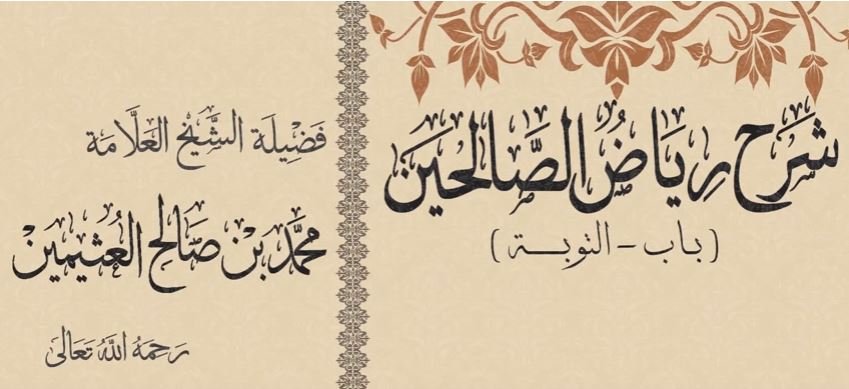 شَرَح رِيَاضُ الصَّالحِينَ
(باب - التوبة)
فَضِيلَة الشَّيْخ العَلَّامَة
محمَّد بْن صَالح العُثيمين
رَحِمَهُ اللَّهُ تَعَالَى